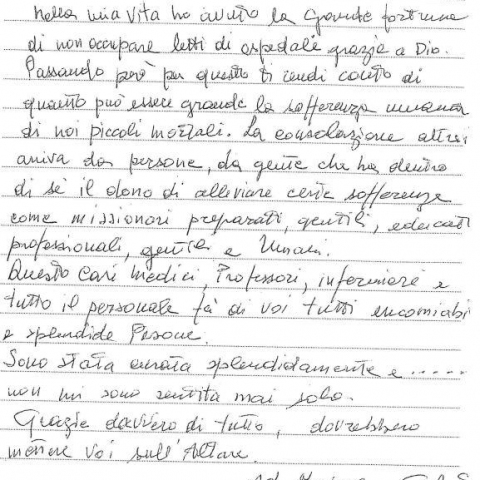 Nella mia vita ho avuto la grande fortuna
di non occupare letti di ospedale grazie a Dio.
Passando però per questo ti rendi conto di
quanto può essere grande la sofferenza umana
di noi piccoli mortali. La consolazione altresì
arriva da persone, da gente che ha dentro
di sè il dono di alleviare certe sofferenze
come missionari preparati, gentili, educati
professionali, gentili e Umani.
Questo Cari Medici, Professori, infermiere e
tutto il personale fà di voi tutti encomiabi
e splendide Persone.
Sono stata curata splendidamente e .....
non mi sono sentita mai solo.
Grazie davvero di tutto, dovrebbero
mettere voi sull'Altare.